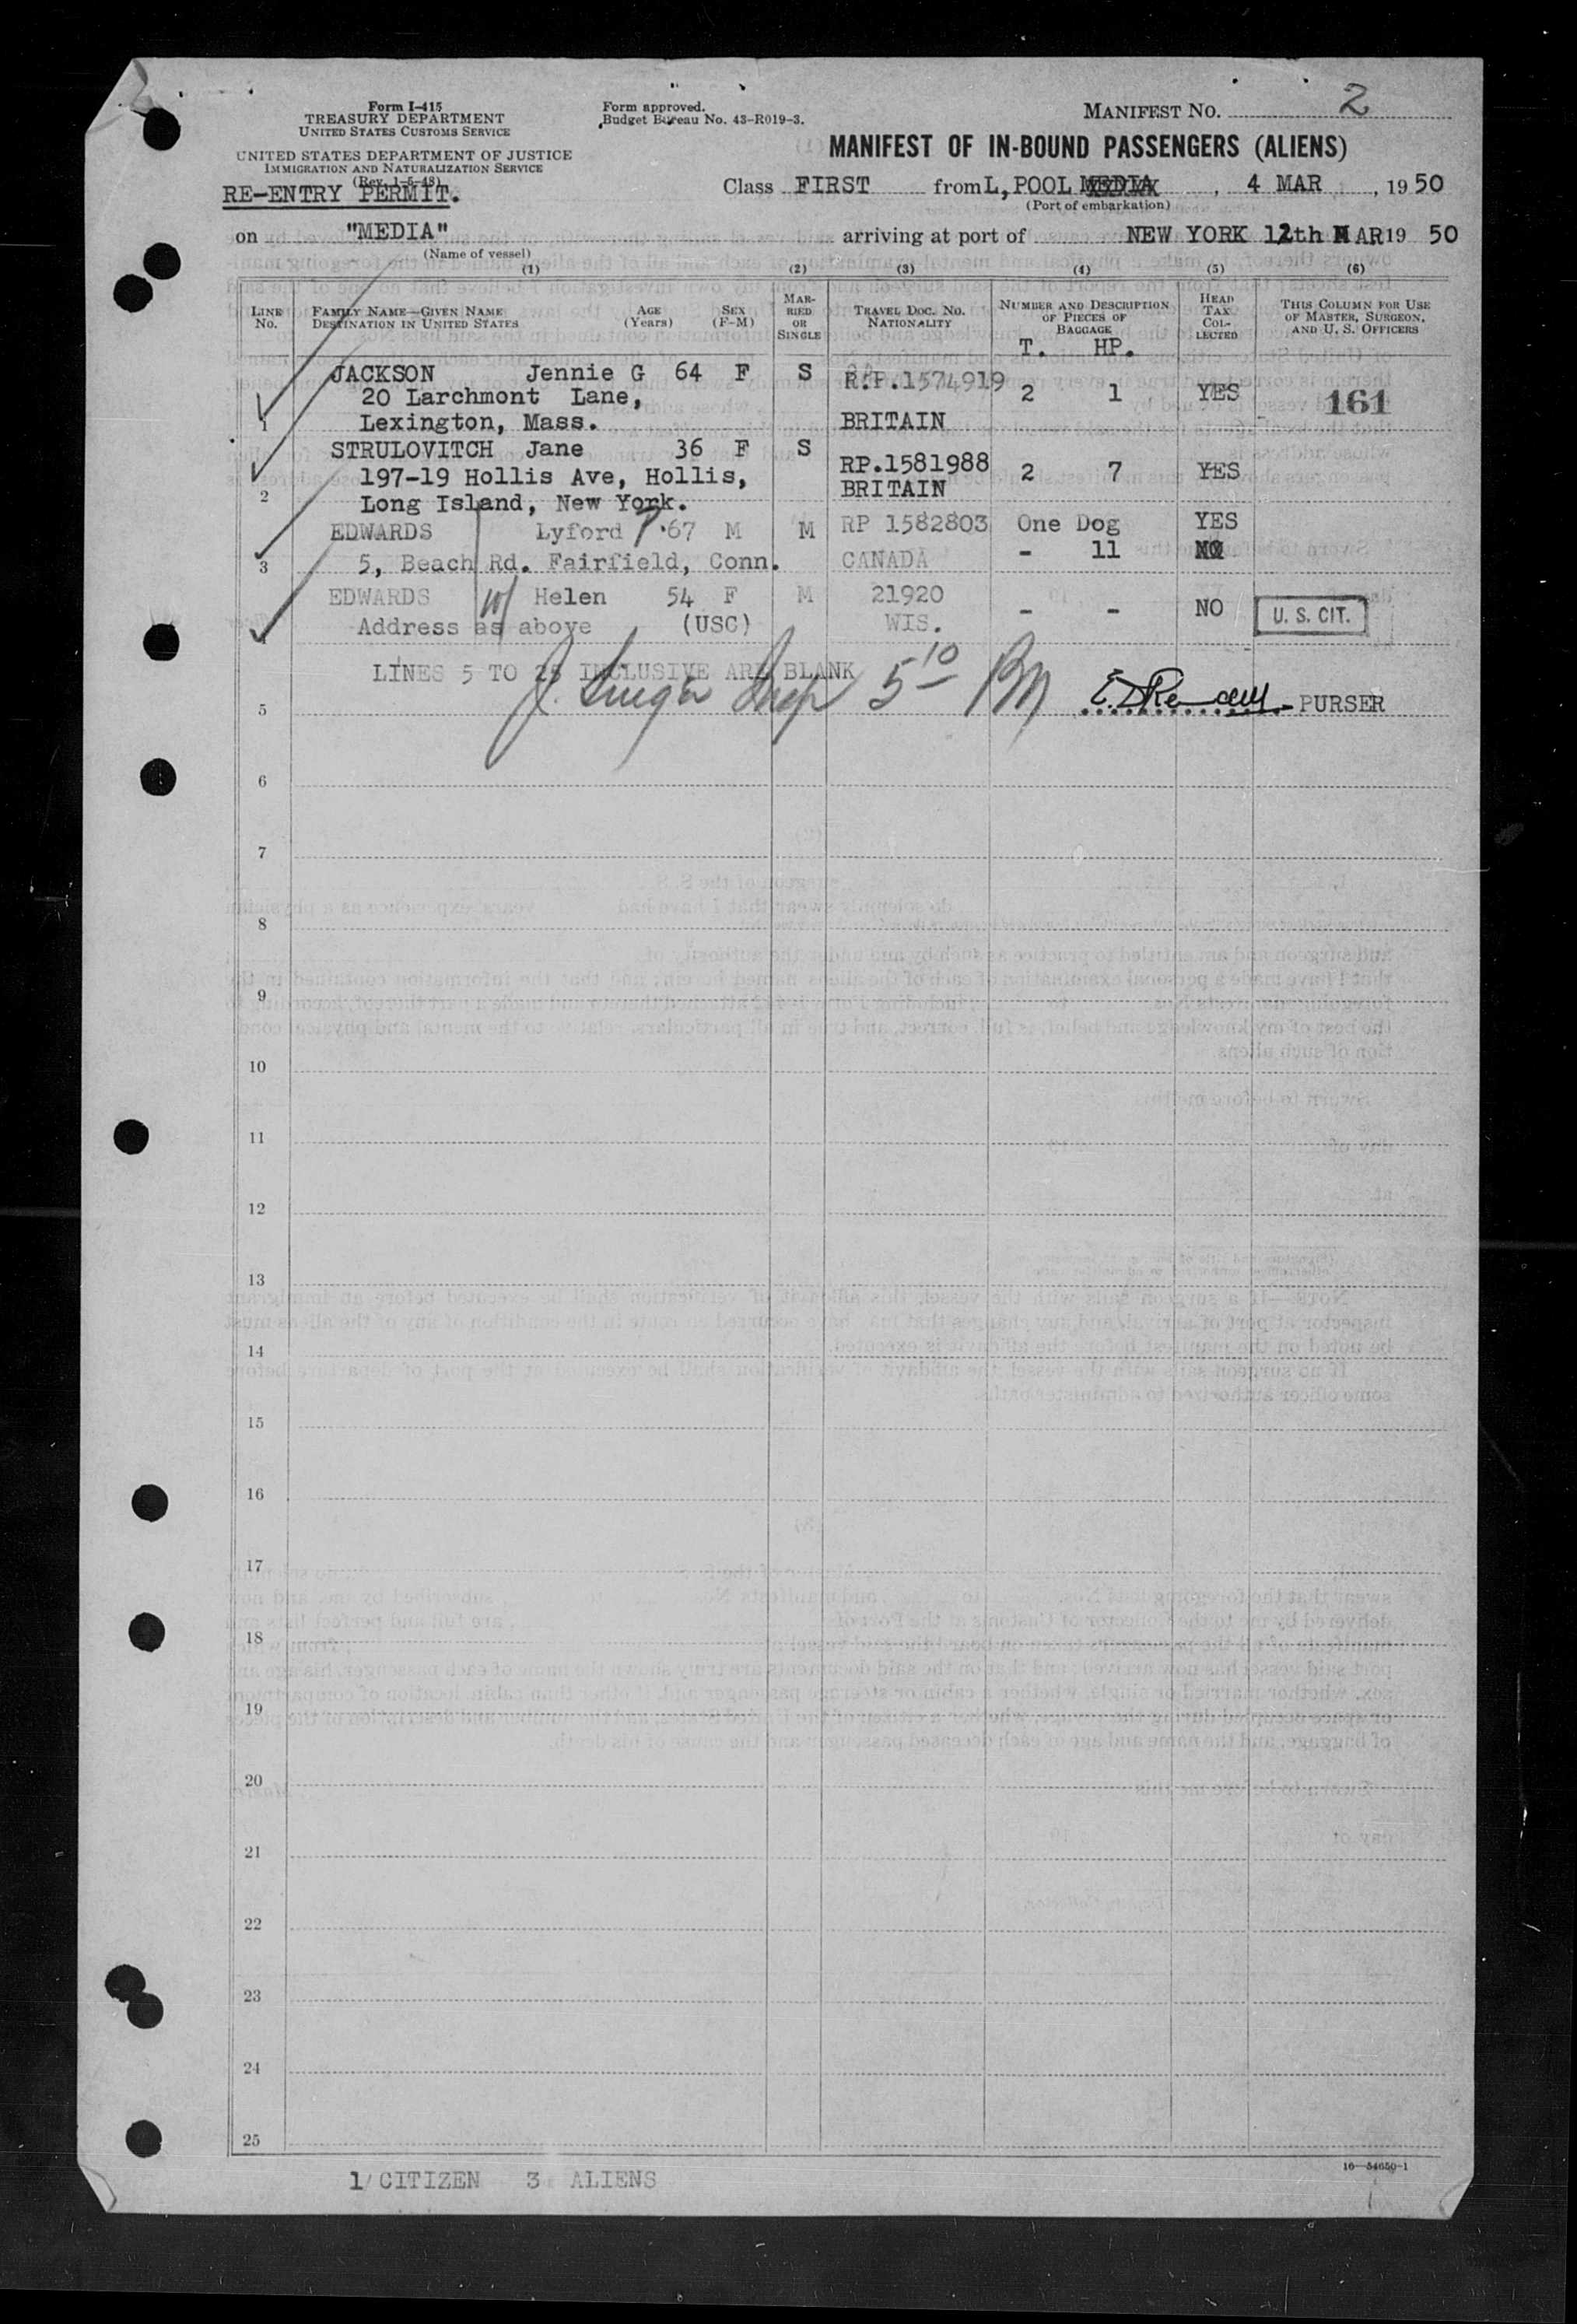 Form I-415
TREASURY DEPARTMENT
UNITED STATES CUSTOMS SERVICE
UNITED STATES DEPARTMENT OF JUSTICE
IMMIGRATION AND NATURALIZATION SERVICE
(Rev. 1-5-48)
RE-ENTRY PERMIT.
Form approved.
Budget Bureau No. 43-R019-3.
MANIFEST NO. 2
MANIFEST OF IN-BOUND PASSENGERS (ALIENS)
Class FIRST from L,POOL MEDIA, 4 MAR, 1950
(Port of embarkation)
on "MEDIA" arriving at port of NEW YORK 12th MAR 19 50
(Name of vessel)
(1) (2) (3) (4) (5) (6)
LINE No. FAMILY NAME—GIVEN NAME DESTINATION IN UNITED STATES AGE (Years) SEX (F-M) MARRIED OR SINGLE TRAVEL DOC. NO. NATIONALITY NUMBER AND DESCRIPTION OF PIECES OF BAGGAGE HEAD TAX COLLECTED THIS COLUMN FOR USE OF MASTER, SURGEON, AND U. S. OFFICERS
T. HP.
JACKSON Jennie G 64 F S R.P.1574919 2 1 YES 161
20 Larchmont Lane,
1 Lexington, Mass. BRITAIN
STRULOVITCH Jane 36 F S RP.1581988 2 7 YES
197-19 Hollis Ave, Hollis, BRITAIN
2 Long Island, New York.
EDWARDS Lyford P 67 M M RP 1582803 One Dog YES
3 5, Beach Rd. Fairfield, Conn. CANADA - 11 NO
EDWARDS W Helen 54 F M 21920 - - NO U. S. CIT.
4 Address as above (USC) WIS.
LINES 5 TO 25 INCLUSIVE ARE BLANK
5 5 10 PM PURSER
6
7
8
9
10
11
12
13
14
15
16
17
18
19
20
21
22
23
24
25
16—54650-1
1 CITIZEN 3 ALIENS